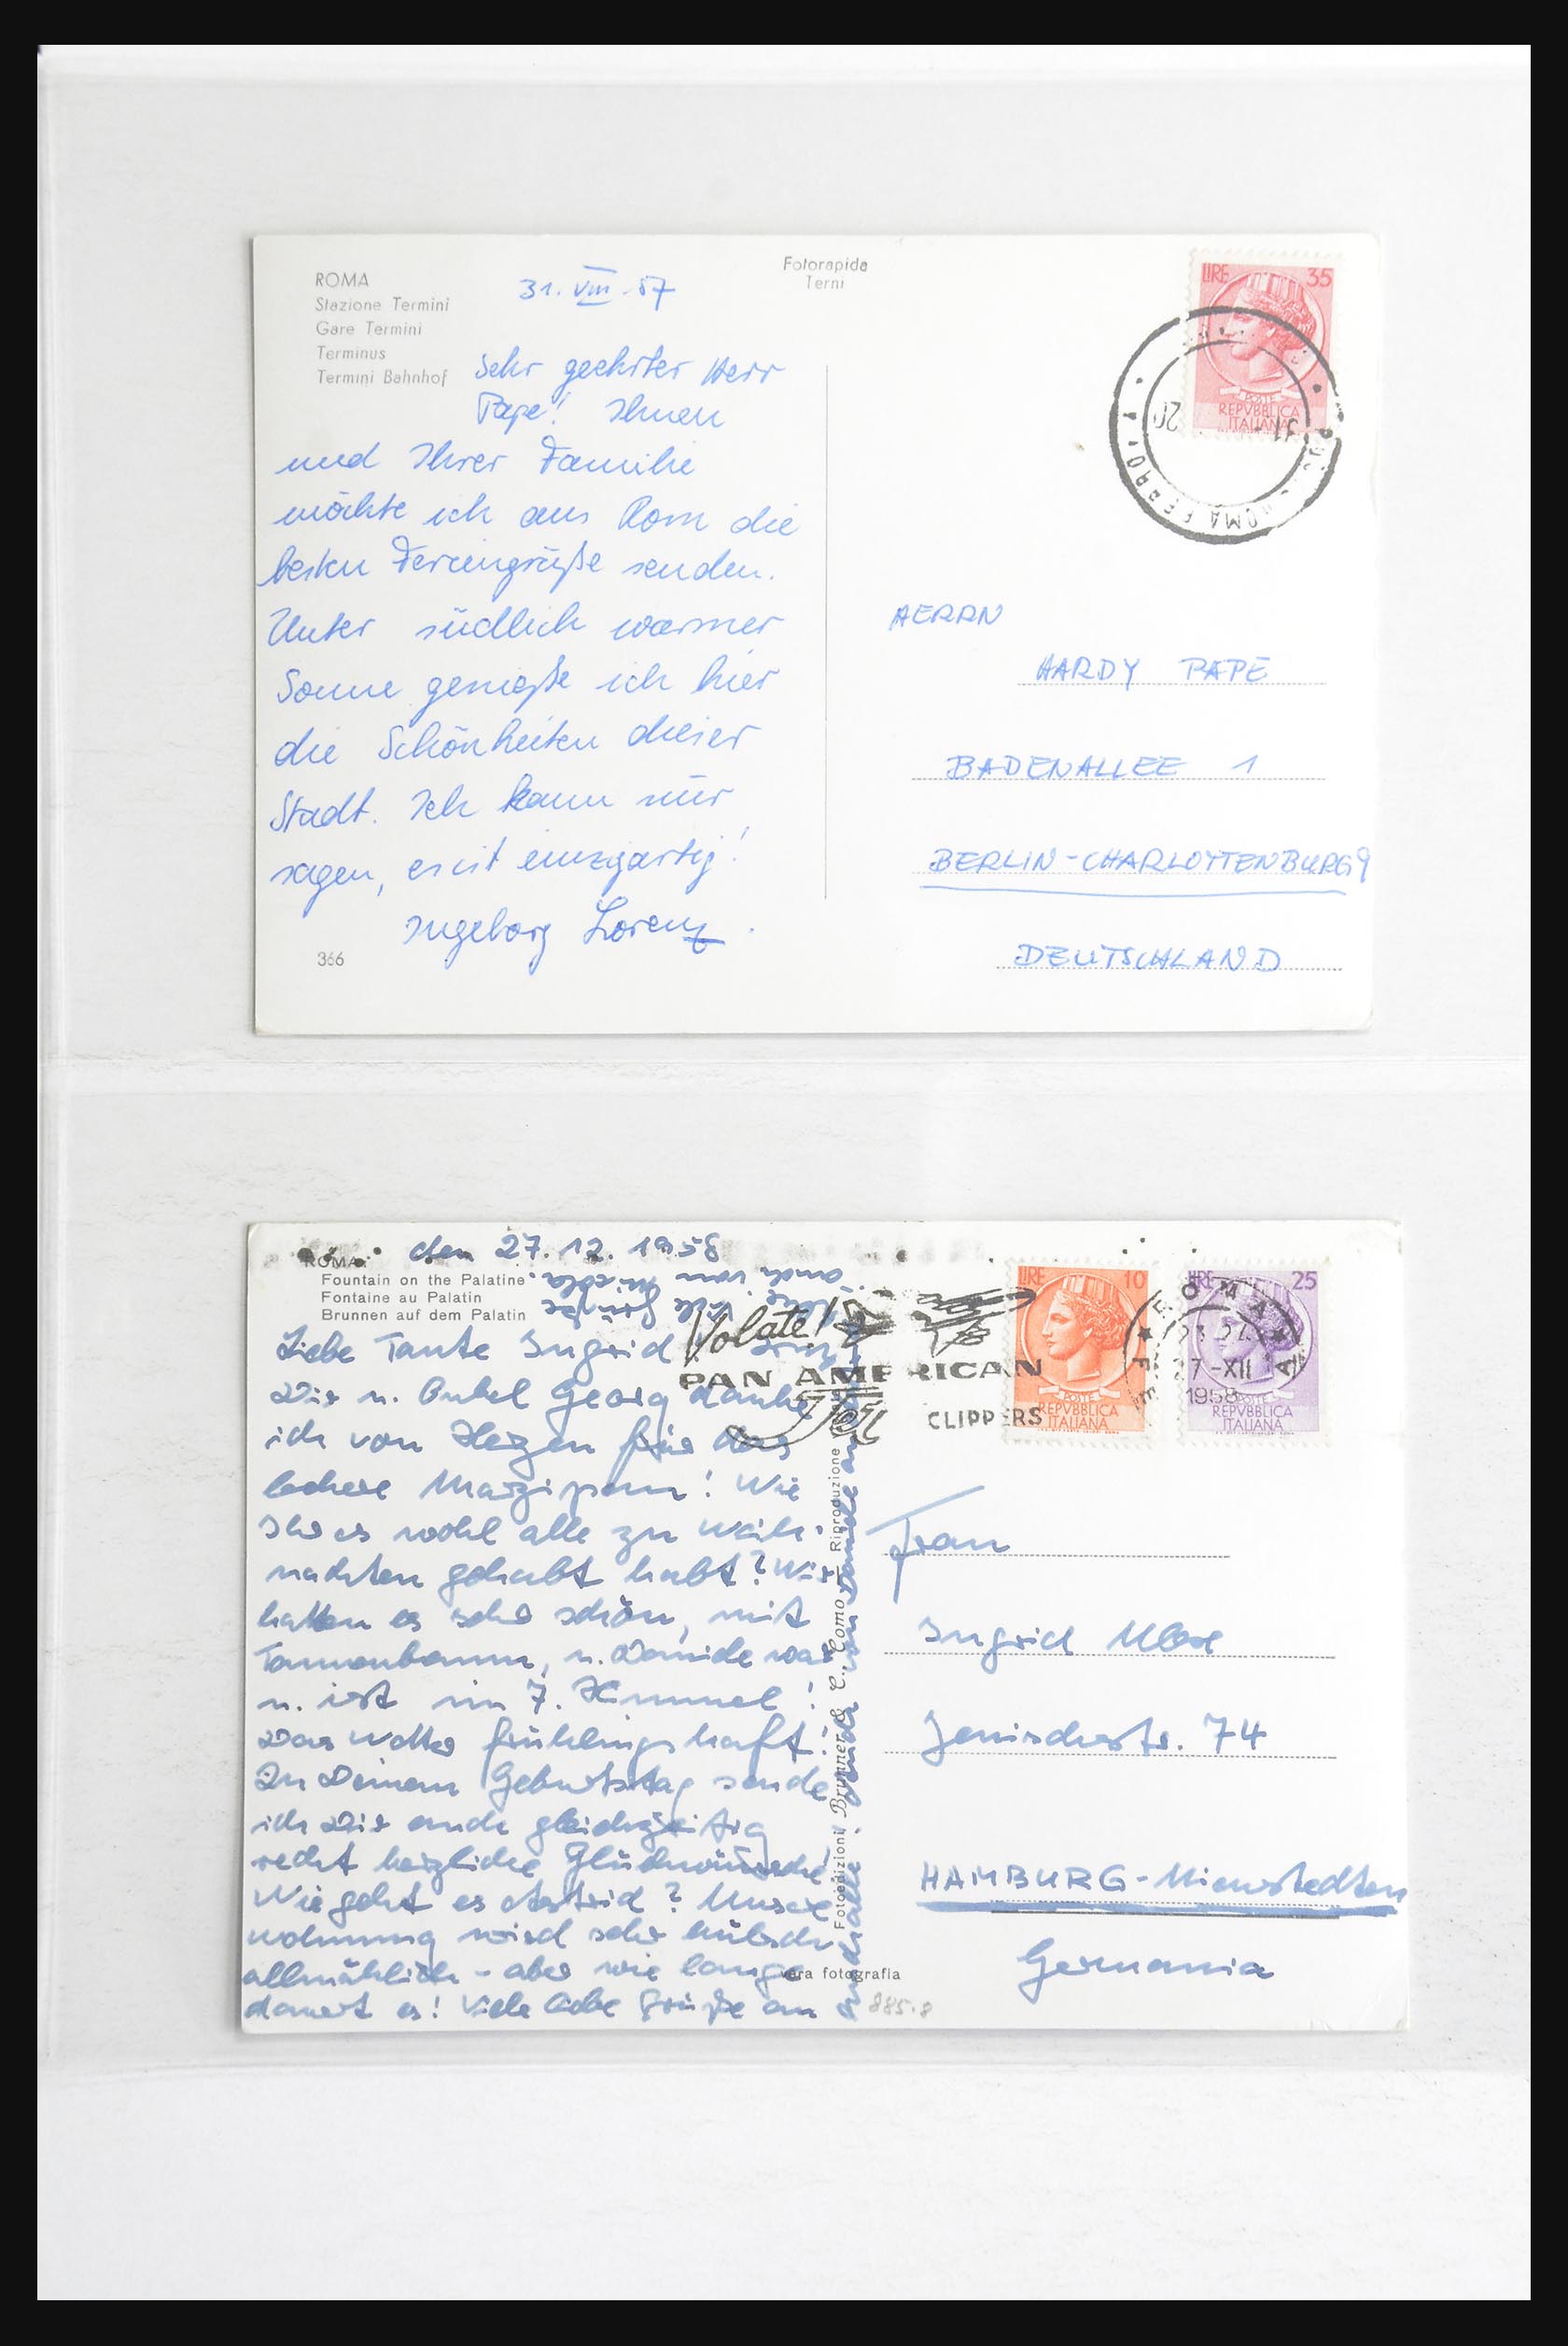 ROMA
Stazione Termini
Gare Termini
Terminus
Termini Bahnhof
Fotorapida
Terni
31. VIII 57
Sehr geehrter Herr
Pape! Ihnen
und Ihrer Familie
möchte ich aus Rom die
besten Feriengrüße senden.
Unter südlich warmer
Sonne genieße ich hier
die Schönheiten dieser
Stadt. Ich kann nur
sagen, es ist einzigartig!
Ingeborg Lorenz.
366
LIRE 35
POSTE
REPVBBLICA
ITALIANA
ROMA FERROVIA
HERRN
HARDY PAPE
BADENALLEE 1
BERLIN-CHARLOTTENBURG 9
DEUTSCHLAND
ROMA
Fountain on the Palatine
Fontaine au Palatin
Brunnen auf dem Palatin
den 27. 12. 1958
Liebe Tante Ingrid!
Dir u. Onkel Georg danke
ich von Herzen für das
leckere Marzipan! Wie
Ihr es wohl alle zu Weih-
nachten gehabt habt? Wir
hatten es sehr schön, mit
Tannenbaum, u. Davide war
u. ist im 7. Himmel!
Das Wetter frühlingshaft!
Zu Deinem Geburtstag sende
ich Dir auch gleichzeitig
recht herzliche Glückwünsche!
Wie geht es Astrid? Unsere
Wohnung wird sehr hübsch
allmählich - aber wie lange
dauert es! Viele liebe Grüße an
Volate!
PAN AMERICAN
CLIPPERS
LIRE 10
POSTE
REPVBBLICA
ITALIANA
LIRE 25
POSTE
REPVBBLICA
ITALIANA
ROMA
27-XII
1958
Fotoedizioni Brunner & C., Como - Riproduzione
vera fotografia
885.8
Frau
Ingrid
Jenischstr. 74
HAMBURG-Nienstedten
Germania